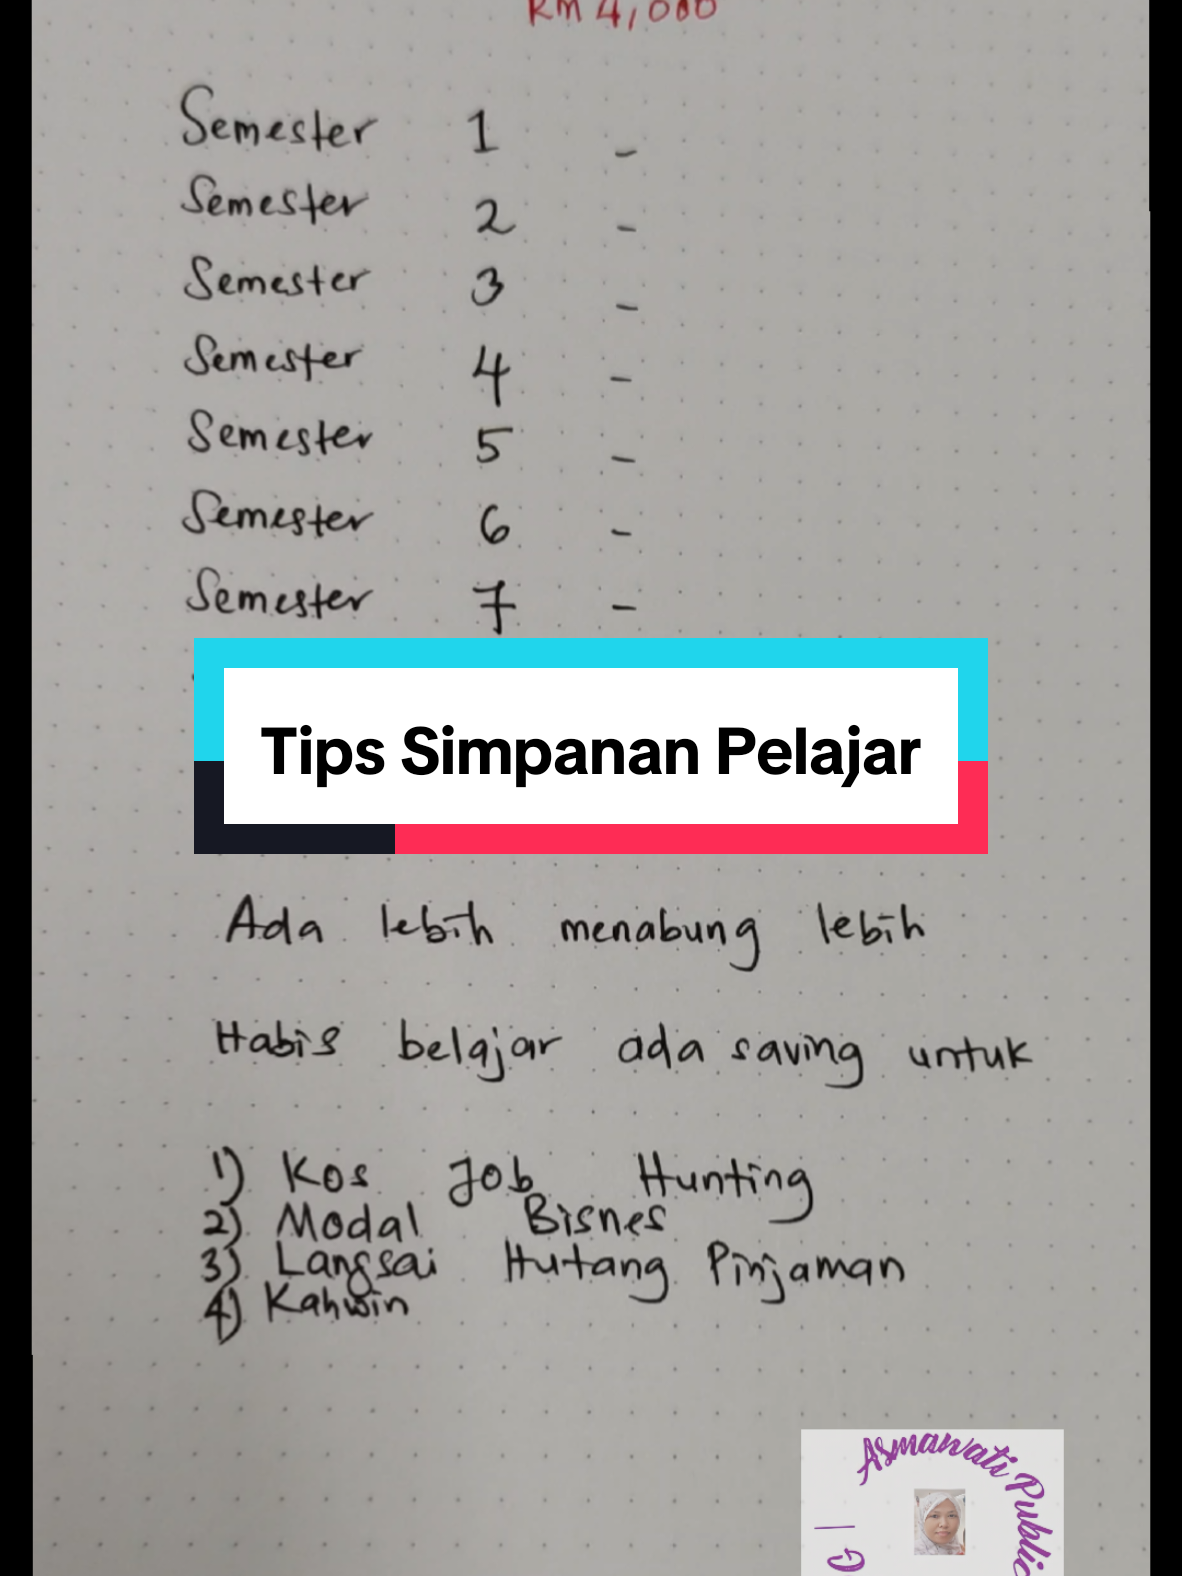 RM 4,000
Semester 1 -
Semester 2 -
Semester 3 -
Semester 4 -
Semester 5 -
Semester 6 -
Semester 7 -
Tips Simpanan Pelajar
Ada lebih menabung lebih
Habis belajar ada saving untuk
1) Kos Job Hunting
2) Modal Bisnes
3) Langsai Hutang Pinjaman
4) Kahwin
Asmawati Public